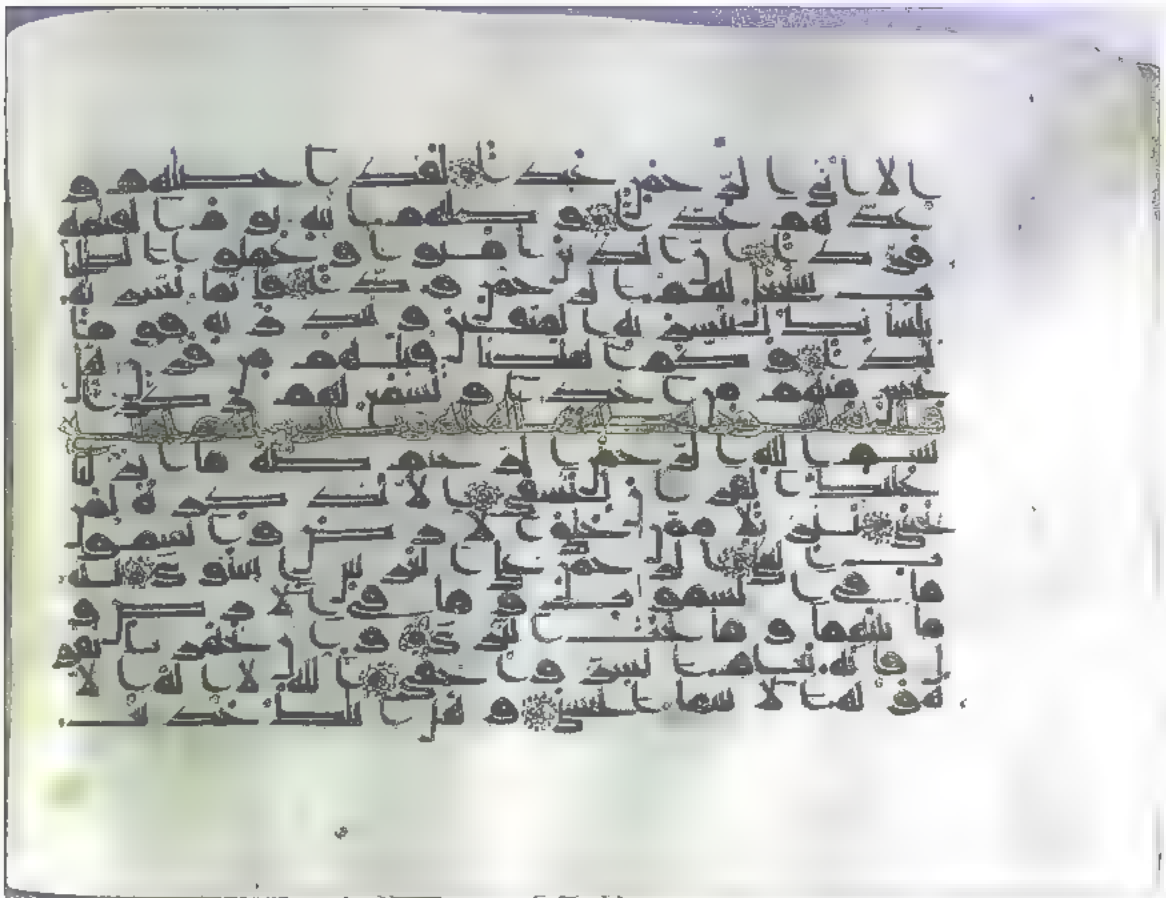 الا اتى الرحمن عبدا لقد احصيهم و
عدهم عدا وكلهم اتيه يوم القيمة
فردا ان الذين امنوا وعملوا الصا
لحت سيجعل لهم الرحمن ودا فانما يسرنه
بلسانك لتبشر به المتقين وتنذر به قوما
لدا وكم اهلكنا قبلهم من قرن هل
تحس منهم من احد او تسمع لهم ركزا
بسم الله الرحمن الرحيم طه ما انزلنا
عليك القران لتشقى الا تذكرة لمن
يخشى تنزيلا ممن خلق الارض والسموا
ت العلى الرحمن على العرش استوى له
ما في السموت وما في الارض و
ما بينهما وما تحت الثرى وان تجهر بالقو
ل فانه يعلم السر واخفى الله لا اله الا
هو له الاسما الحسنى وهل اتيك حديث